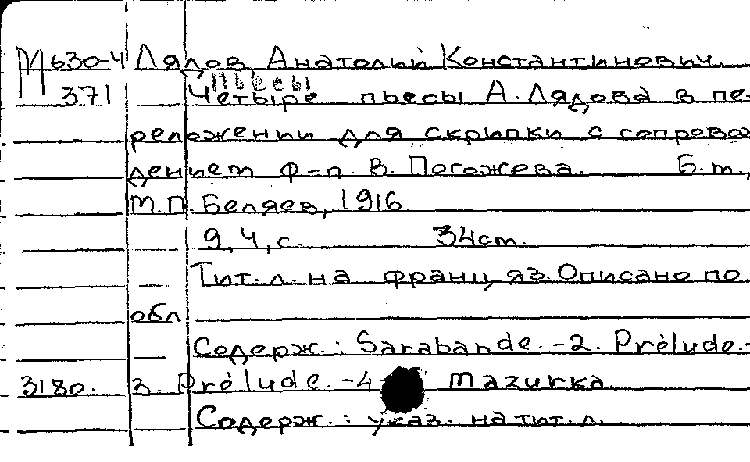 М 630-4 Лядов Анатолий Константинович.
Пьесы
371 Четыре пьесы А. Лядова в пе-
реложении для скрипки с сопрово
дением ф-п. В. Погожева. Б.м.,
М.П. Беляев, 1916
9, 4, с. 34cm.
Тит. л на франц, яз. Описано по
обл
Содерж.: Sarabande. -2. Prélude. -
3180. 3. Prèlude. -4 Mazurka.
Содерж.: указ. на тит. л.